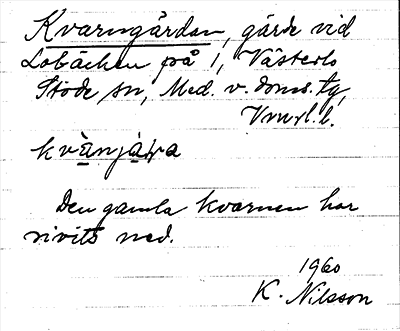 Kvarngärdan, gärde vid
Lobäcken på 1, Västerlo
Stöde sn, Med. v. doms. tg,
Vrml. l.
kvànjàɽa
Den gamla kvarnen har
rivits ned.
1960
K. Nilsson